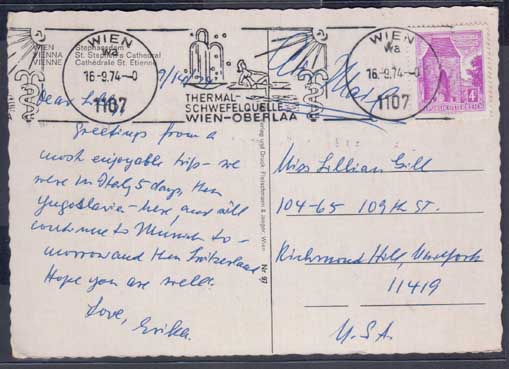 WIEN Stephansdom
VIENNA St. Stephen's Cathedral
VIENNE Cathédrale St. Etienne
WIEN
wa
16.-9.74-0
1107
THERMAL-
SCHWEFELQUELLE
WIEN-OBERLAA
WIEN
wa
16.-9.74-0
1107
4
REPUBLIK ÖSTERREICH
9/14/74
Air Mail
Dear
Greetings from a
most enjoyable trip – we
were in Italy 5 days, then
Yugoslavia – here, and will
continue to Munich to-
morrow and then Switzerland
Hope you are well.
Love, Erika.
Verlag und Druck Fleischmann & Jaeger, Wien Nr. 97
Miss Lillian Gill
104-65 109th ST.
Richmond Hill, New York
11419
U.S.A.